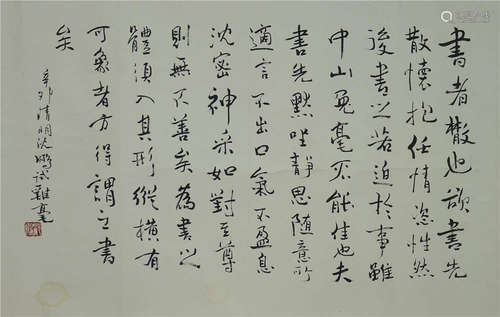 書者散也欲書先
散懷抱任情恣性然
後書之若迫於事雖
中山兔毫不能佳也夫
書先默坐靜思隨意所
適言不出口氣不盈息
沈密神采如對至尊
則無不善矣為書之
體須入其形縱橫有
可象者方得謂之書
矣
辛卯清明沈鵬試雞毫